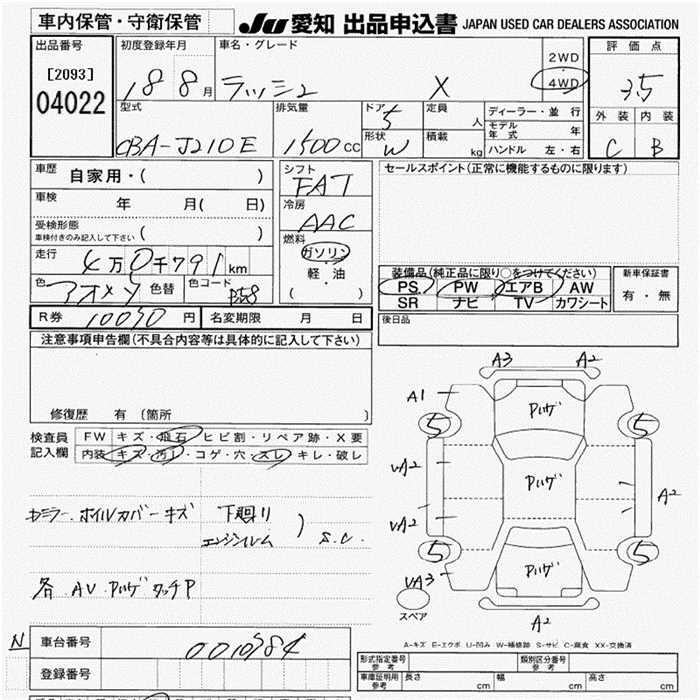 車内保管・守衛保管
JU 愛知 出品申込書 JAPAN USED CAR DEALERS ASSOCIATION
出品番号
[2093]
04022
初度登録年月
18 8月
車名・グレード
ラッシュ X
2WD
・
4WD
評価点
3.5
外装 内装
C B
型式
CBA-J210E
排気量
1500cc
ドア
5
形状
W
定員
人
積載
kg
ディーラー・並行
モデル年式 年
ハンドル 左・右
車歴
自家用・( )
車検
年 月( 日)
受検形態
車検付きのみ記入して下さい ( )
走行
4万0千791km
色
アオメタ 色替
色コード
B58
シフト
FAT
冷房
AAC
燃料
ガソリン
・
軽・油
( )
セールスポイント(正常に機能するものに限ります)
装備品(純正品に限り○をつけてください)
PS PW エアB AW
SR ナビ TV カワシート
新車保証書
有・無
後日品
R券 10090 円
名変期限 月 日
注意事項申告欄(不具合内容等は具体的に記入して下さい)
修復歴 有 〔箇所 〕
検査員記入欄
FW キズ・飛石・ヒビ割・リペア跡・X要
内装 キズ・汚れ・コゲ・穴・スレ・キレ・破レ
カミラー、ホイルカバーキズ
下廻り
エンジンルム ) S.C.
各 AV Pハゲ タッチP
A3 A2
A1
Pハゲ
5 5
UA2
Pハゲ
A2
UA2
5 5
Pハゲ
UA3
スペア
A2
A-キズ E-エクボ U-凹み W-補修跡 S-サビ C-腐食 XX-交換済
N
車台番号
0010984
登録番号
形式指定番号 参考
類別区分番号 参考
車庫証明用 参考
長さ cm
幅 cm
高さ cm